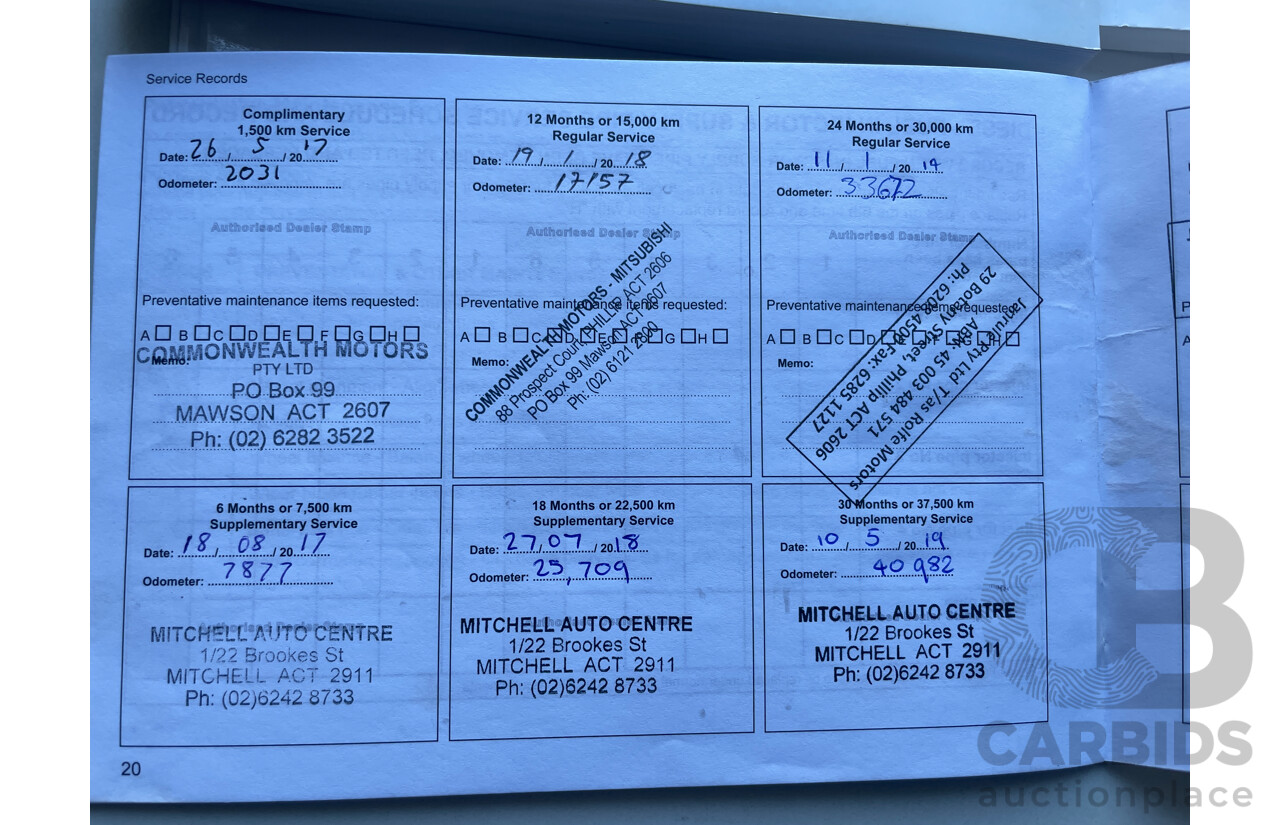 Service Records
Complimentary
1,500 km Service
Date: 26 / 5 / 20 17
Odometer: 2031
Authorised Dealer Stamp
Preventative maintenance items requested:
A B C D E F G H
Memo:
COMMONWEALTH MOTORS
PTY LTD
PO Box 99
MAWSON ACT 2607
Ph: (02) 6282 3522
12 Months or 15,000 km
Regular Service
Date: 19 / 1 / 20 18
Odometer: 17157
Authorised Dealer Stamp
Preventative maintenance items requested:
A B C D E F G H
Memo:
COMMONWEALTH MOTORS - MITSUBISHI
88 Prospect Court PHILLIP ACT 2606
PO Box 99 Mawson ACT 2607
Ph: (02) 6121 2600
24 Months or 30,000 km
Regular Service
Date: 11 / 1 / 20 19
Odometer: 33672
Authorised Dealer Stamp
Preventative maintenance items requested
A B C D E F G H
Memo:
Pty Ltd T/as Rolfe Motors
ABN: 45 003 484 571
29 Botany Street, Phillip ACT 2606
Ph: 6208 4500 Fax: 6285 1127
6 Months or 7,500 km
Supplementary Service
Date: 18 / 08 / 20 17
Odometer: 7877
MITCHELL AUTO CENTRE
1/22 Brookes St
MITCHELL ACT 2911
Ph: (02)6242 8733
18 Months or 22,500 km
Supplementary Service
Date: 27/07 / 20 18
Odometer: 25,709
MITCHELL AUTO CENTRE
1/22 Brookes St
MITCHELL ACT 2911
Ph: (02)6242 8733
30 Months or 37,500 km
Supplementary Service
Date: 10 / 5 / 20 19
Odometer: 40982
MITCHELL AUTO CENTRE
1/22 Brookes St
MITCHELL ACT 2911
Ph: (02)6242 8733
20
CARBIDS
auctionplace